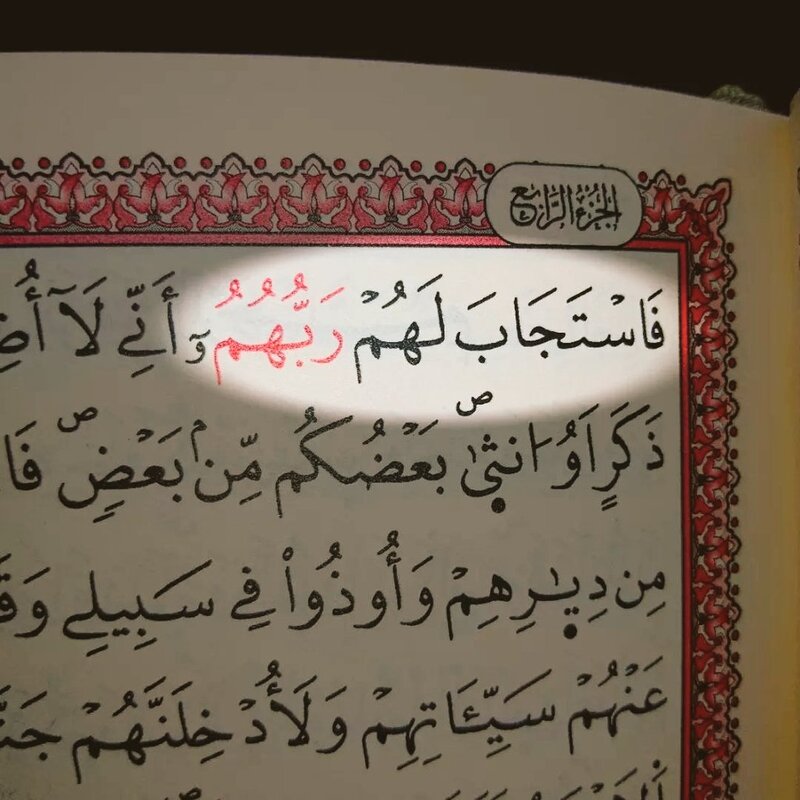 الجزء الرابع
فَاسْتَجَابَ لَهُمْ رَبُّهُمُۥٓ أَنِّي لَآ أُضِ
ذَكَرٍ اَوُ ا۟نث۪ىٰ بَعْضُكُم مِّنۢ بَعْضٖ فَا
مِن دِيٰ۪رِهِمْ وَأُوذُواْ فِے سَبِيلِے وَقَ
عَنْهُمْ سَيِّـَٔاتِهِمْ وَلَأُدْخِلَنَّهُمْ جَنَّ